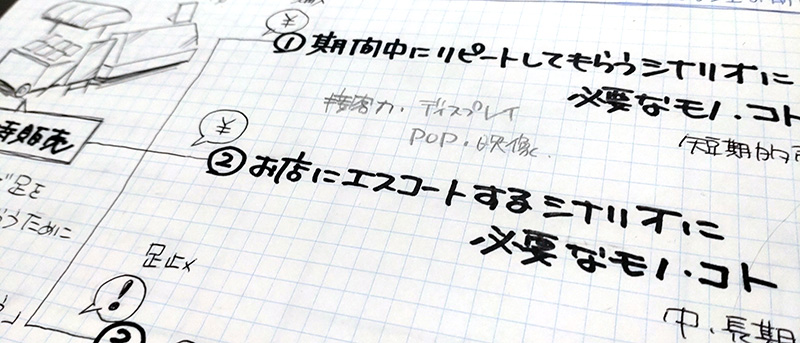 ¥
① 期間中にリピートしてもらうシナリオに
必要なモノ・コト
接客力・ディスプレイ
POP・映像
短期的
¥
② お店にエスコートするシナリオに
必要なモノ・コト
中・長期
足を
ために
足止メ
!